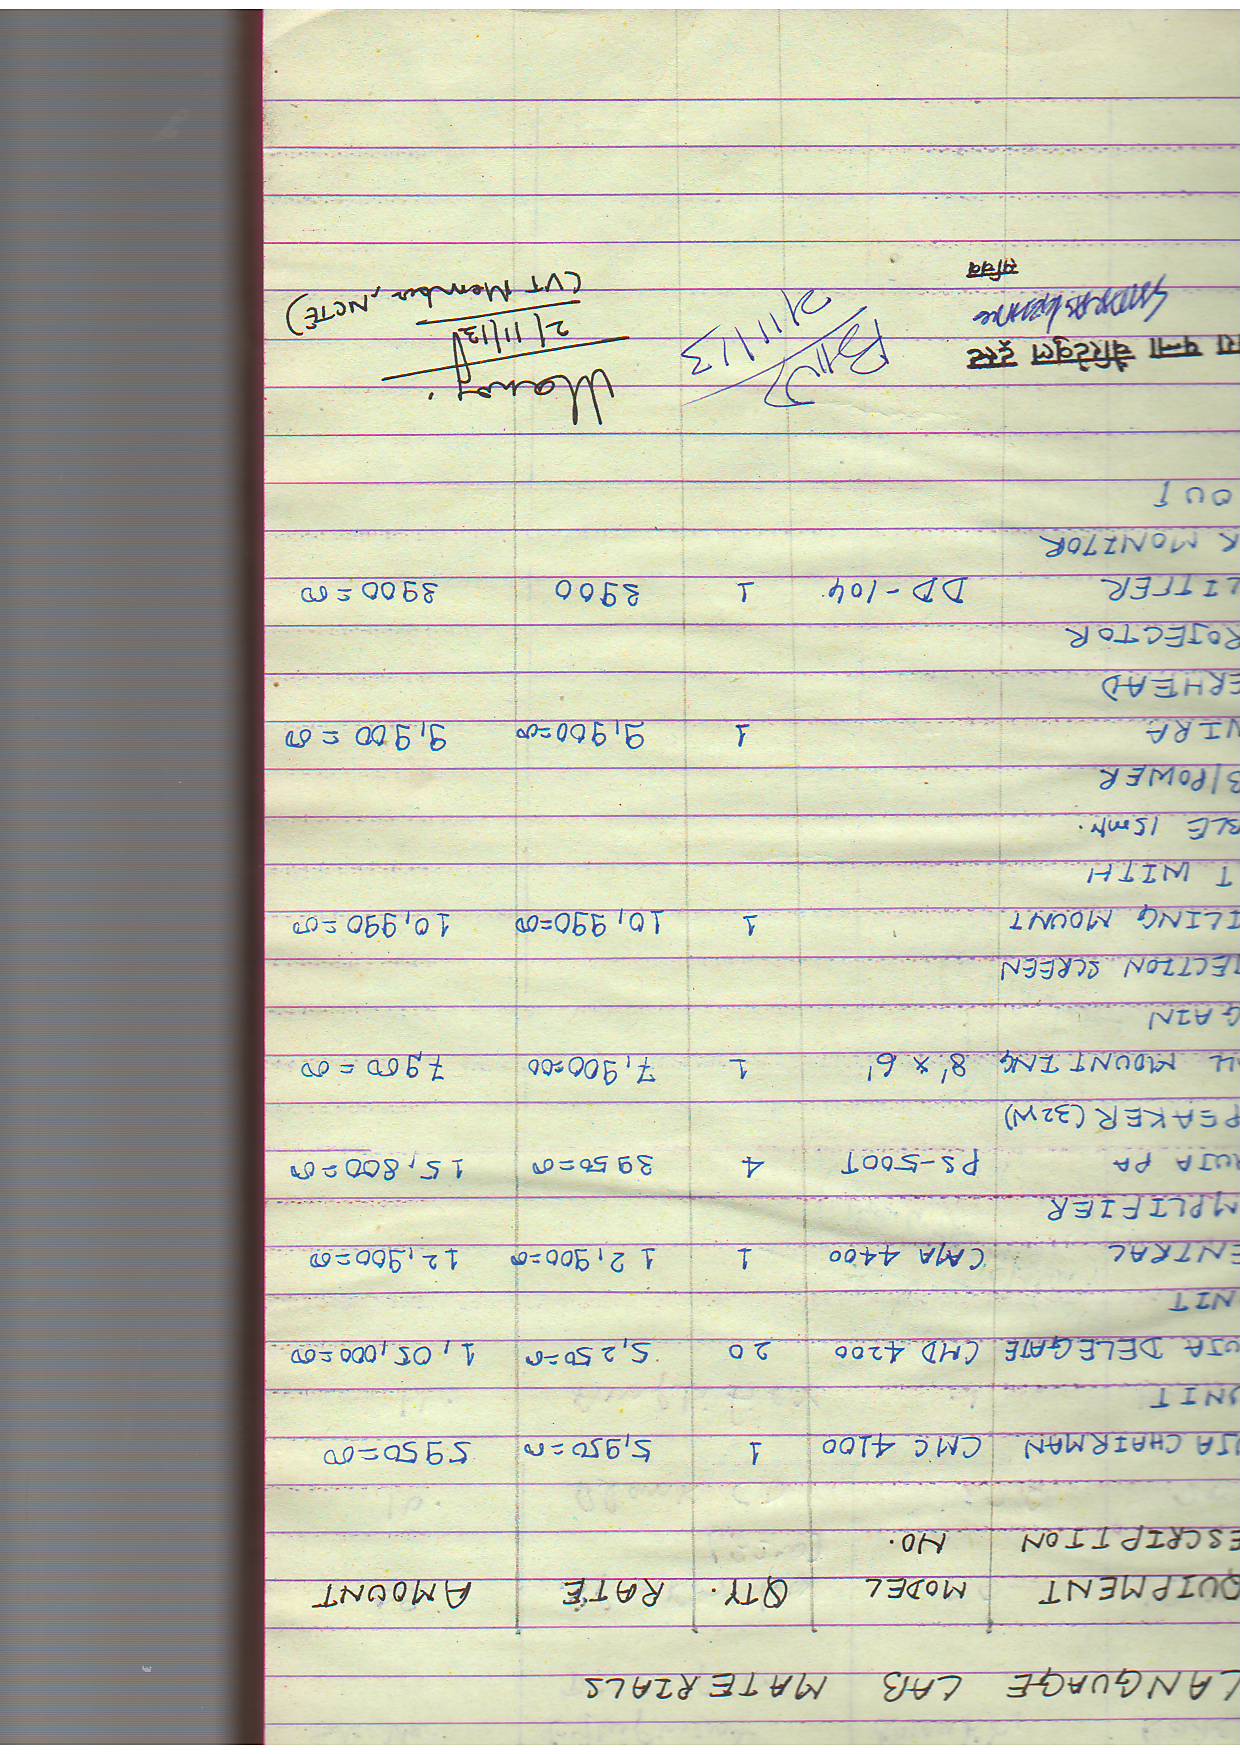 LANGUAGE LAB MATERIALS
QUIPMENT MODEL QTY. RATE AMOUNT
ESCRIPTION NO.
JA CHAIRMAN CMC 4100 1 5,950=00 5950=00
UNIT
UJA DELEGATE CMD 4200 20 5,250=00 1,05,000=00
NIT
ENTRAL CMA 4400 1 12,900=00 12,900=00
MPLIFIER
HUJA PA PS-500T 4 3950=00 15,800=00
PEAKER (32W)
LL MOUNTING 8' x 6' 1 7,900=00 7,900=00
GAIN
JECTION SCREEN
ILING MOUNT 1 10,990=00 10,990=00
T WITH
BLE 15mtr.
B/POWER
NIRA 1 9,900=00 9,900=00
ERHEAD
ROJECTOR
LITTER DD-104 1 3900 3900=00
K MONITOR
OUT
पन्ना चैरिटेबुल ट्रस्ट
सचिव
21/11/13
Manoj
21/11/13
(VT Member, NCTE)